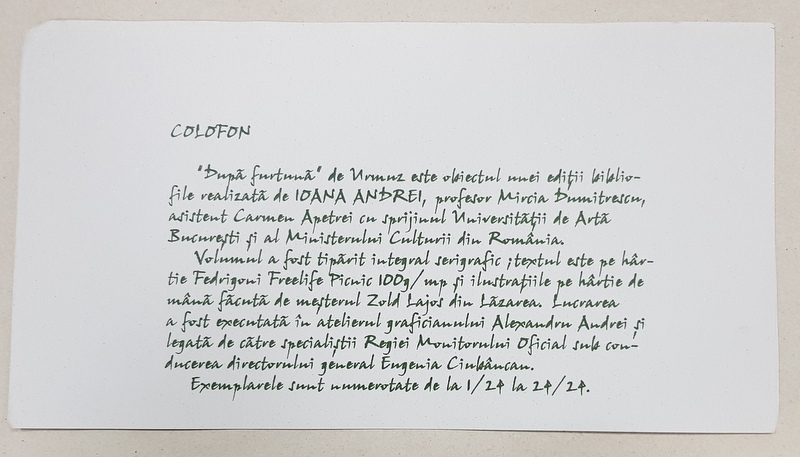 COLOFON
"După furtună" de Urmuz este obiectul unei ediții biblio-
file realizată de IOANA ANDREI, profesor Mircia Dumitrescu,
asistent Carmen Apetrei cu sprijinul Universității de Artă
București și al Ministerului Culturii din România.
Volumul a fost tipărit integral serigrafic ;textul este pe hâr-
tie Fedrigoni Freelife Picnic 100g/mp și ilustrațiile pe hârtie de
mână făcută de meșterul Zold Lajos din Lăzarea. Lucrarea
a fost executată în atelierul graficianului Alexandru Andrei și
legată de către specialiștii Regiei Monitorului Oficial sub con-
ducerea directorului general Eugenia Ciubâncan.
Exemplarele sunt numerotate de la 1/24 la 24/24.